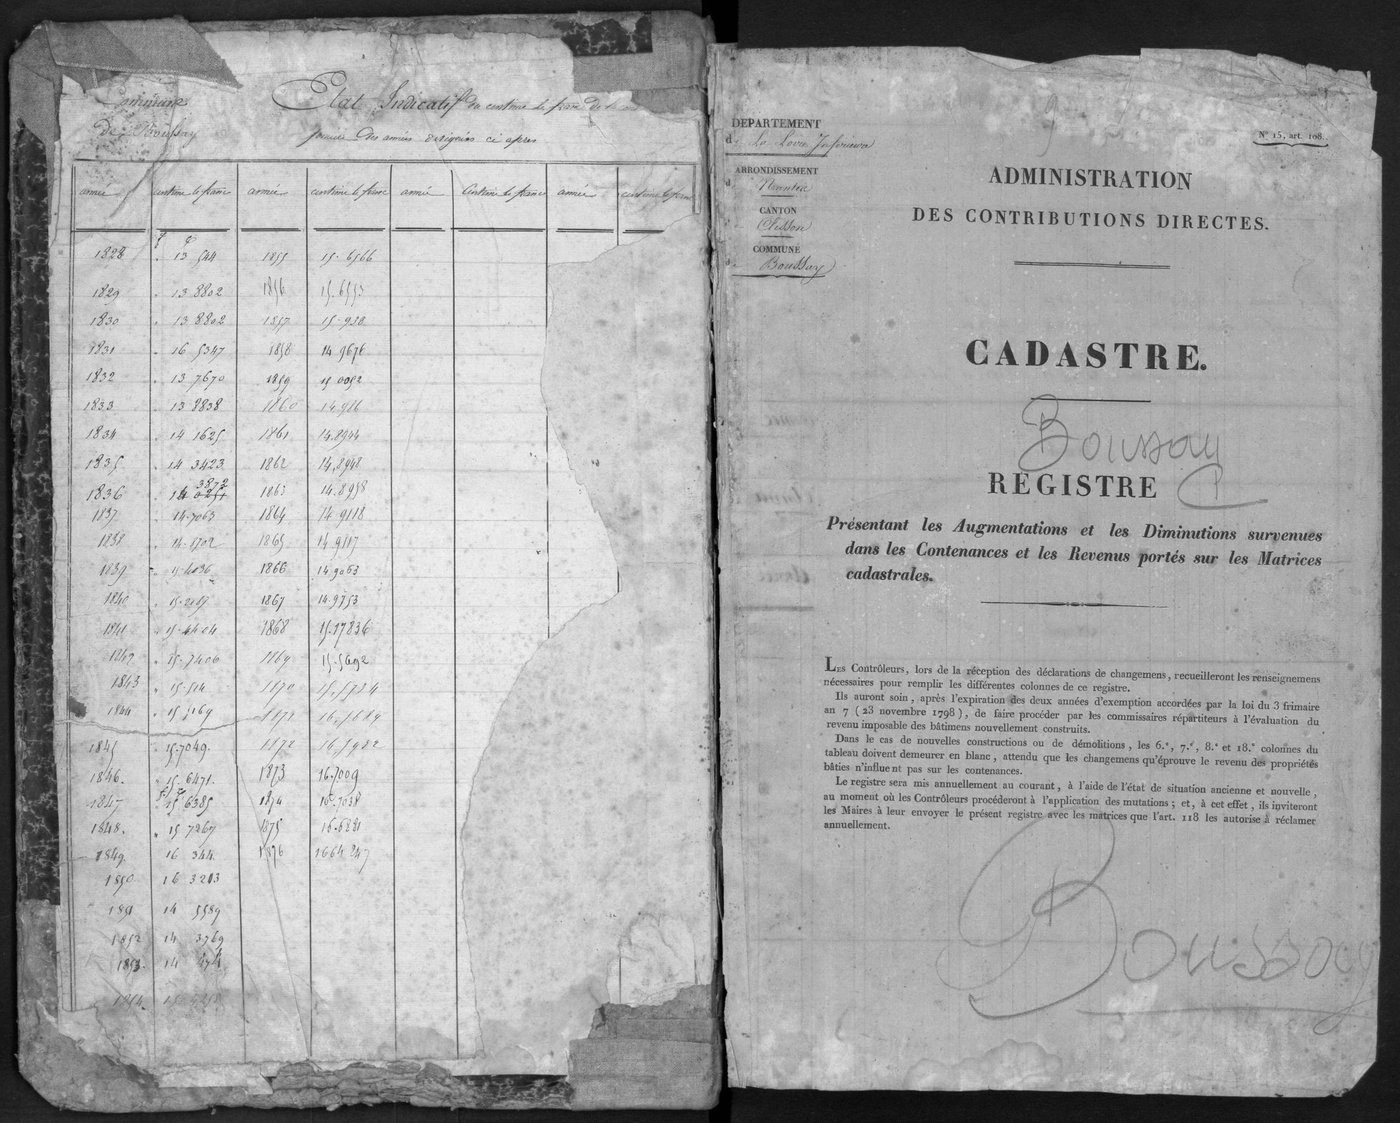 Commune
de Boussay
Etat Indicatif du centime le franc de la
pendant des années désignées ci après
année centime le franc année centime le franc année Centime le franc année centime le franc
1828 13 544 1855 15.6566
1829 13 8802 1856 15.6553
1830 13 8802 1857 15.938
1831 16 5347 1858 14 9676
1832 13 7670 1859 15 0052
1833 13 8838 1860 14.986
1834 14 1625 1861 14.8944
1835 14 3423 1862 14.8948
3872
1836 14 1863 14.8958
1837 14.7063 1864 14.9118
1838 14.8702 1865 14.9517
1839 15 4036 1866 14.9063
1840 15.2187 1867 14.9753
1841 15.4404 1868 15.17836
1842 15.7406 1869 15.5692
1843 15.514 1870 15.5754
1844 15 5169 1871 16.1689
1845 15.7049 1872 16.7982
1846. 15.6471 1873 16.7009
1847 15 6385 1874 16.7038
1848. 15 7267 1875 16.6281
1849 16 344 1876 1664 247
1850 16 3203
1851 14 5589
1852 14 3769
1853. 14 474
1854 15
DÉPARTEMENT
de La Loire Inférieure
ARRONDISSEMENT
Nantes
CANTON
Clisson
COMMUNE
Boussay
N° 15, art. 108.
ADMINISTRATION
DES CONTRIBUTIONS DIRECTES.
CADASTRE.
Boussay
REGISTRE
Présentant les Augmentations et les Diminutions survenues
dans les Contenances et les Revenus portés sur les Matrices
cadastrales.
LES Contrôleurs, lors de la réception des déclarations de changemens, recueilleront les renseignemens
nécessaires pour remplir les différentes colonnes de ce registre.
Ils auront soin, après l'expiration des deux années d'exemption accordées par la loi du 3 frimaire
an 7 (23 novembre 1798), de faire procéder par les commissaires répartiteurs à l'évaluation du
revenu imposable des bâtimens nouvellement construits.
Dans le cas de nouvelles constructions ou de démolitions, les 6.e, 7.e, 8.e et 18.e colonnes du
tableau doivent demeurer en blanc, attendu que les changemens qu'éprouve le revenu des propriétés
bâties n'influent pas sur les contenances.
Le registre sera mis annuellement au courant, à l'aide de l'état de situation ancienne et nouvelle,
au moment où les Contrôleurs procéderont à l'application des mutations; et, à cet effet, ils inviteront
les Maires à leur envoyer le présent registre avec les matrices que l'art. 118 les autorise à réclamer
annuellement.
Boussay